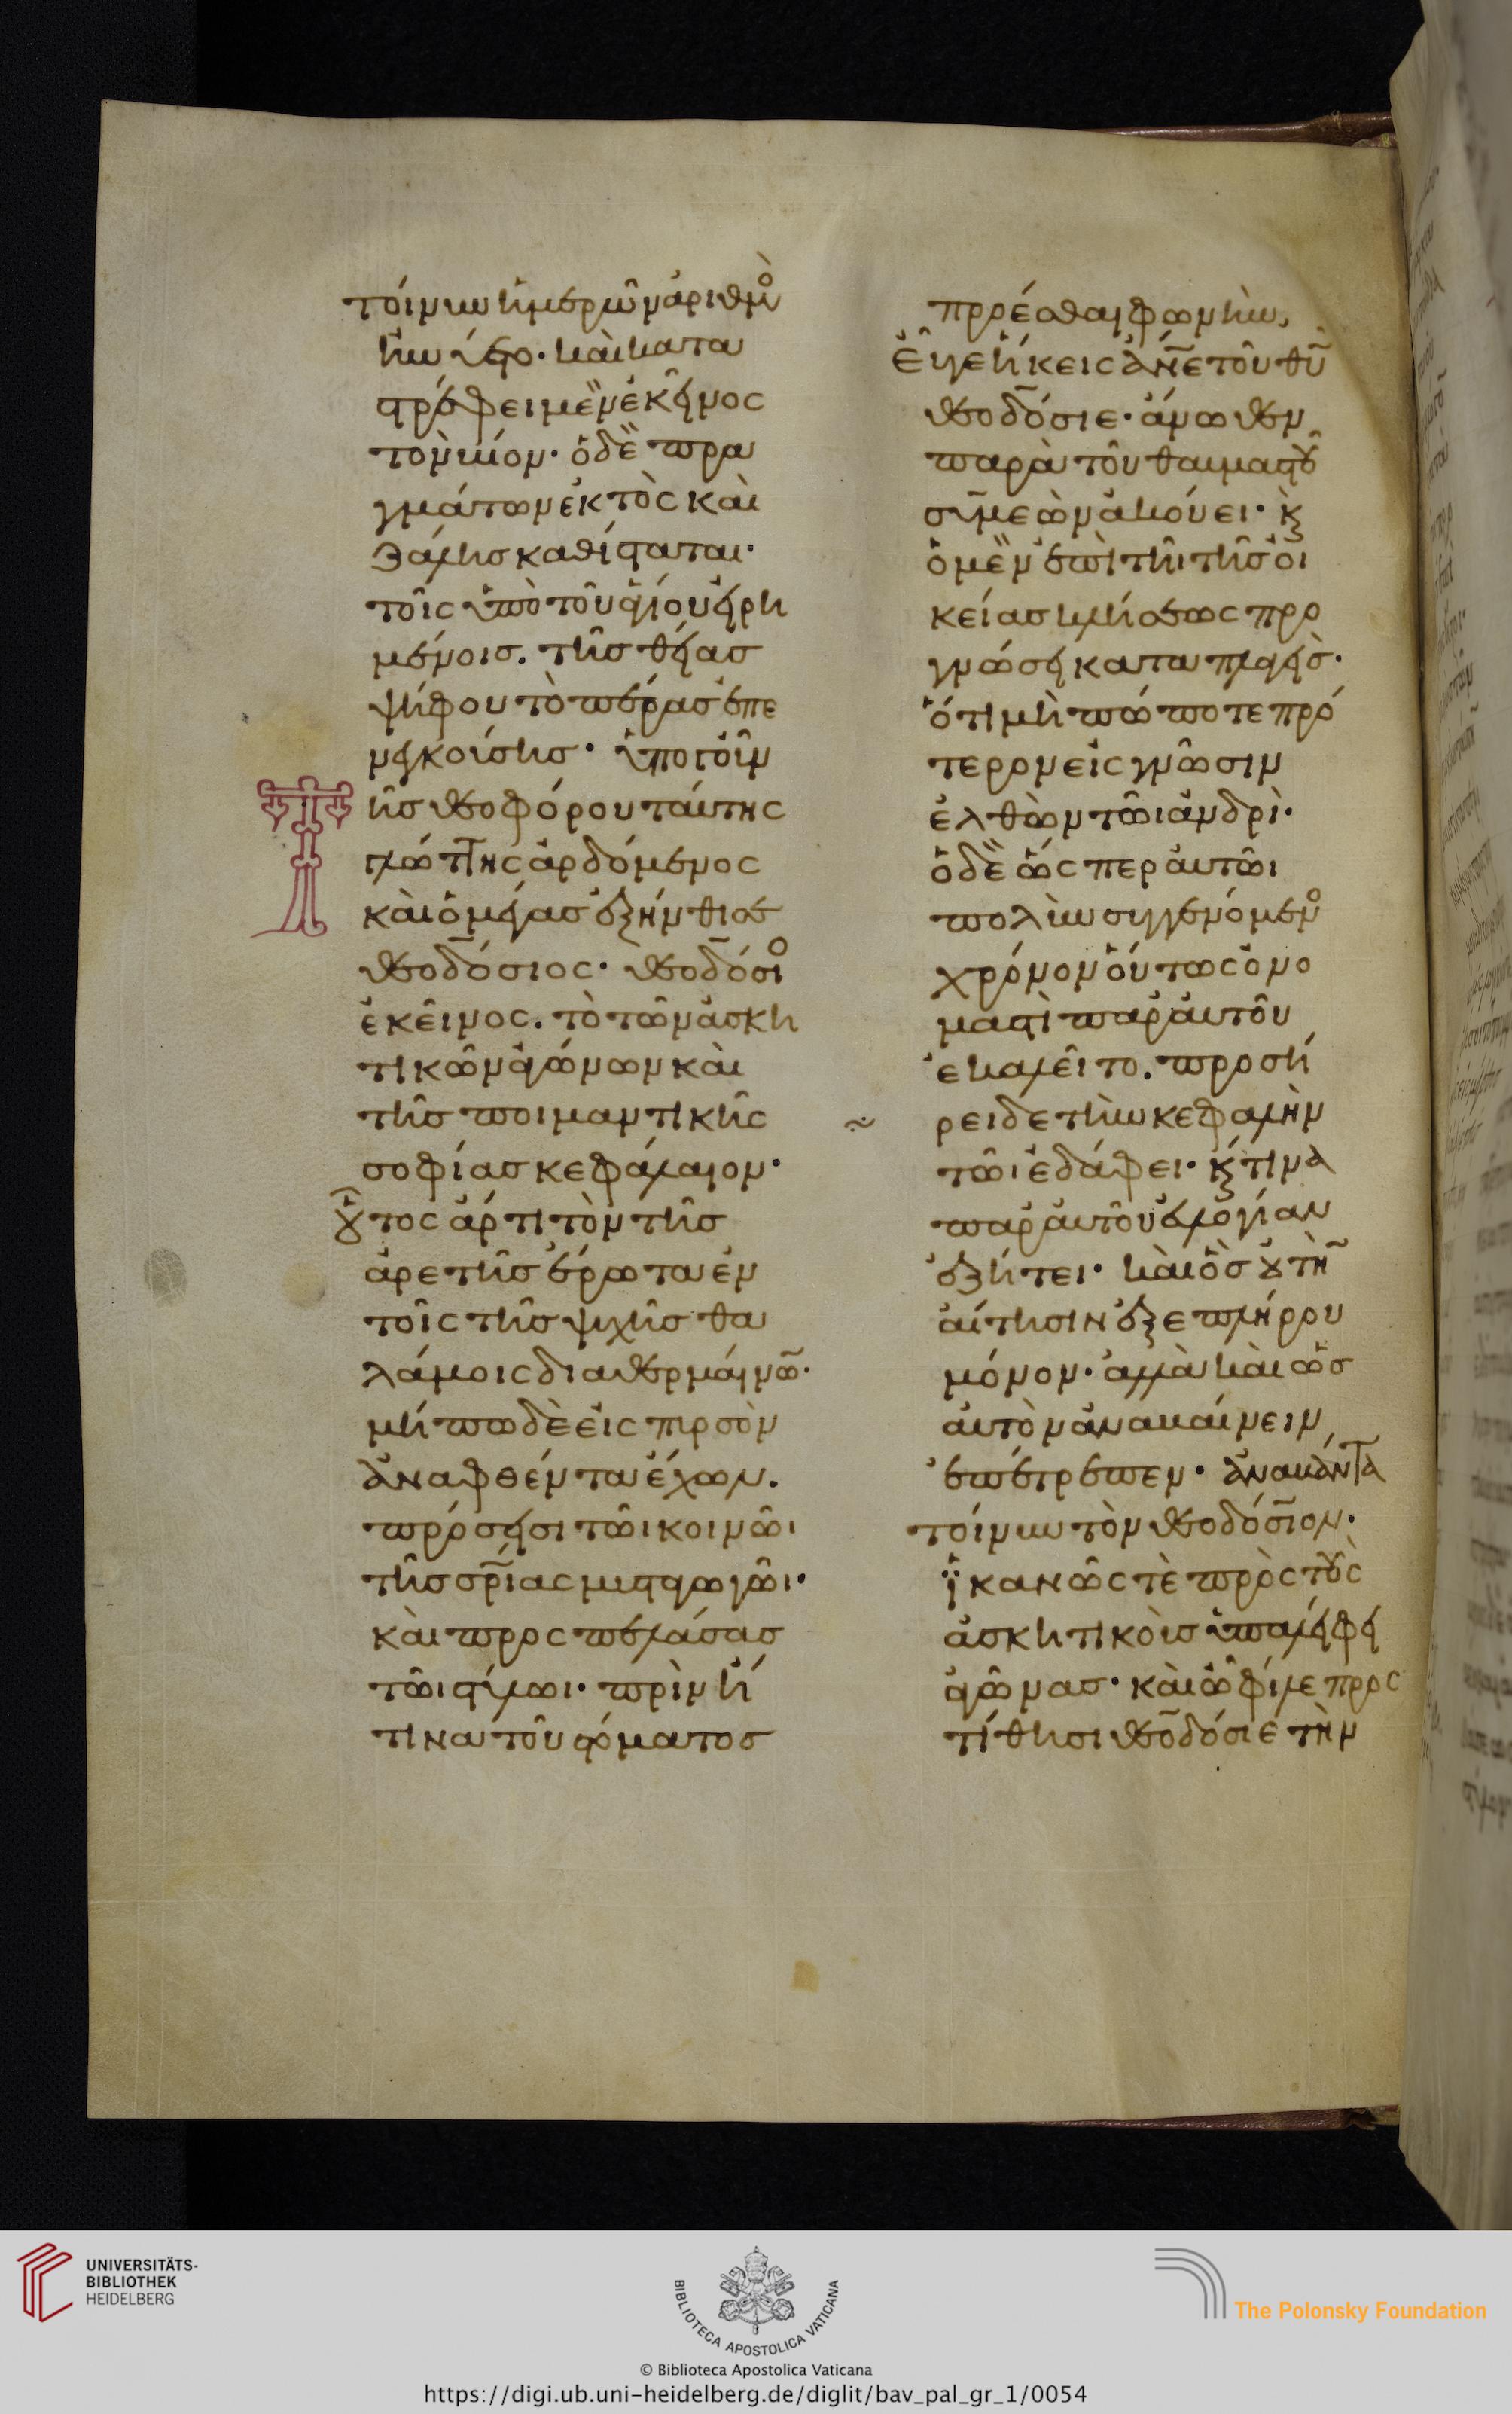 τοίνυν ἡμερῶν ἀριθμὸ
ἦν ὕστο· καὶ κατα
στρέφει μὲν ἐκεῖνος
τὸν βίον· ὁ δὲ πρα
γμάτων ἐκτὸς καὶ
ζάλης καθίσταται·
τοῖς ὑπὸ τοῦ ἁγίου εἰρη
μένοις. τῆς θείας
ψήφου τὸ πέρας ἐπε
νεγκούσης· ὑπὸ γοῦν
τῆς θεοφόρου ταύτης
γλώττης ἀρδόμενος
καὶ ὁ μέγας ἐξήνθισε
θεοδόσιος· θεοδόσιο
ἐκεῖνος. τὸ τῶν ἀσκη
τικῶν ἀγώνων καὶ
τῆς ποιμαντικῆς
σοφίας κεφάλαιον·
οὗτος ἄρτι τὸν τῆς
ἀρετῆς ἔρωτα ἐν
τοῖς τῆς ψυχῆς θα
λάμοις διαθερμαίνω·
μήπω δὲ εἰς πυρσὸν
ἀναφθέντα ἔχων.
πρόσεισι τῶι κοινῶι
τῆς σρίας μυσταγωγῶι·
καὶ προσπελάσας
τῶι στύλωι· πρὶν ἤ
τινα τοῦ στόματος
προέσθαι φωνὴν,
εὖγε ἥκεις ἄνε τοῦ θυ
θεοδόσιε· ἄνωθεν
παρὰ τοῦ θαυμαστοῦ
συμεὼν ἀκούει· καὶ
ὁ μὲν ἐπὶ τῆι τῆς οἰ
κείας κλήσεως προ
γνώσει καταπλαγεὶς·
ὅτι μὴ πώποτε πρό
τερον εἰς γνῶσιν
ἐλθὼν τῶι ἀνδρὶ·
ὁ δὲ ὥσπερ αὐτῶι
πολὺν συγγενόμενο
χρόνον οὕτως ὀνο
μαστὶ παρ αὐτοῦ
ἐκαλεῖτο. προσή
ρειδε τὴν κεφαλὴν
τῶι ἐδάφει· καί τινα
παρ αὐτοῦ εὐλογίαν
ἐζήτει· καὶ ὃς οὐ τὴν
αἴτησιν ἐξεπλήρου
μόνον· ἀλλὰ καὶ ὡς
αὐτὸν ἀνακαίνειν
ἐπέτρεπεν· ἀνακάντα
τοίνυν τὸν θεοδόσιον·
ἱκανῶς τὲ πρὸς τοὺς
ἀσκητικοὺς ὑπαλείφει
ἀγῶνας· καὶ ὦ φίλε προσ
τίθησι θεοδόσιε τὴν
UNIVERSITÄTS-
BIBLIOTHEK
HEIDELBERG
BIBLIOTECA APOSTOLICA VATICANA
The Polonsky Foundation
© Biblioteca Apostolica Vaticana
https://digi.ub.uni-heidelberg.de/diglit/bav_pal_gr_1/0054